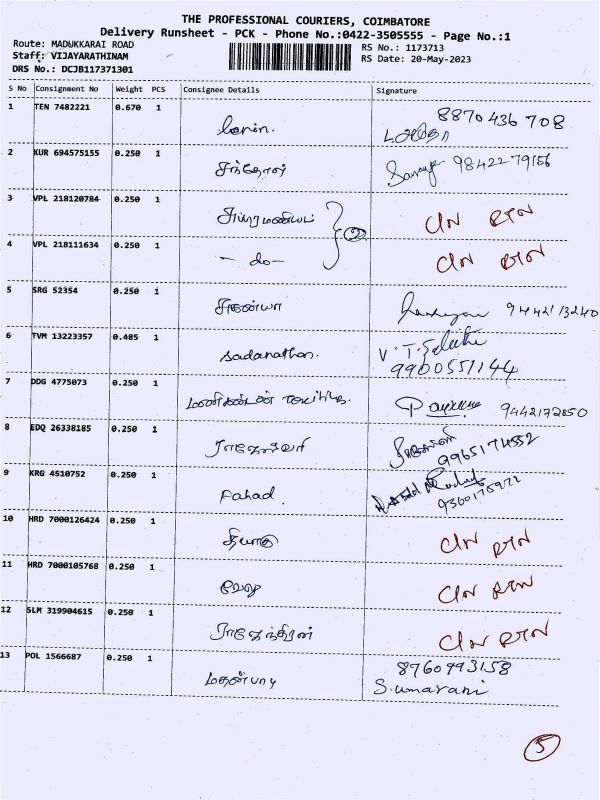 THE PROFESSIONAL COURIERS, COIMBATORE
Delivery Runsheet - PCK - Phone No.:0422-3505555 - Page No.:1
Route: MADUKKARAI ROAD
Staff: VIJAYARATHINAM
DRS No.: DCJB117371301
RS No.: 1173713
RS Date: 20-May-2023
S No Consignment No Weight PCS Consignee Details Signature
1 TEN 7482221 0.670 1 8870436708
2 KUR 694575155 0.250 1 சந்தோஷ் 9842279156
3 VPL 218120784 0.250 1 சுப்ரமணியம் C/N RTN
4 VPL 218111634 0.250 1 - do - C/N RTN
5 SRG 52354 0.250 1 சரண்யா 9442113240
6 TVM 13223357 0.485 1 Sadanathan. V. T.
9900551144
7 DDG 4775073 0.250 1 மணிகண்டன் 9442172850
8 EDQ 26338185 0.250 1 ராஜேஸ்வரி
9965174552
9 KRG 4510752 0.250 1 Fahad.
9360175972
10 HRD 7000126424 0.250 1 தியாகு C/N RTN
11 HRD 7000105768 0.250 1 வேலு C/N RTN
12 SLM 319904615 0.250 1 ராஜேந்திரன் C/N RTN
13 POL 1566687 0.250 1 8760993158
மதன்பாடி S.umarani
5